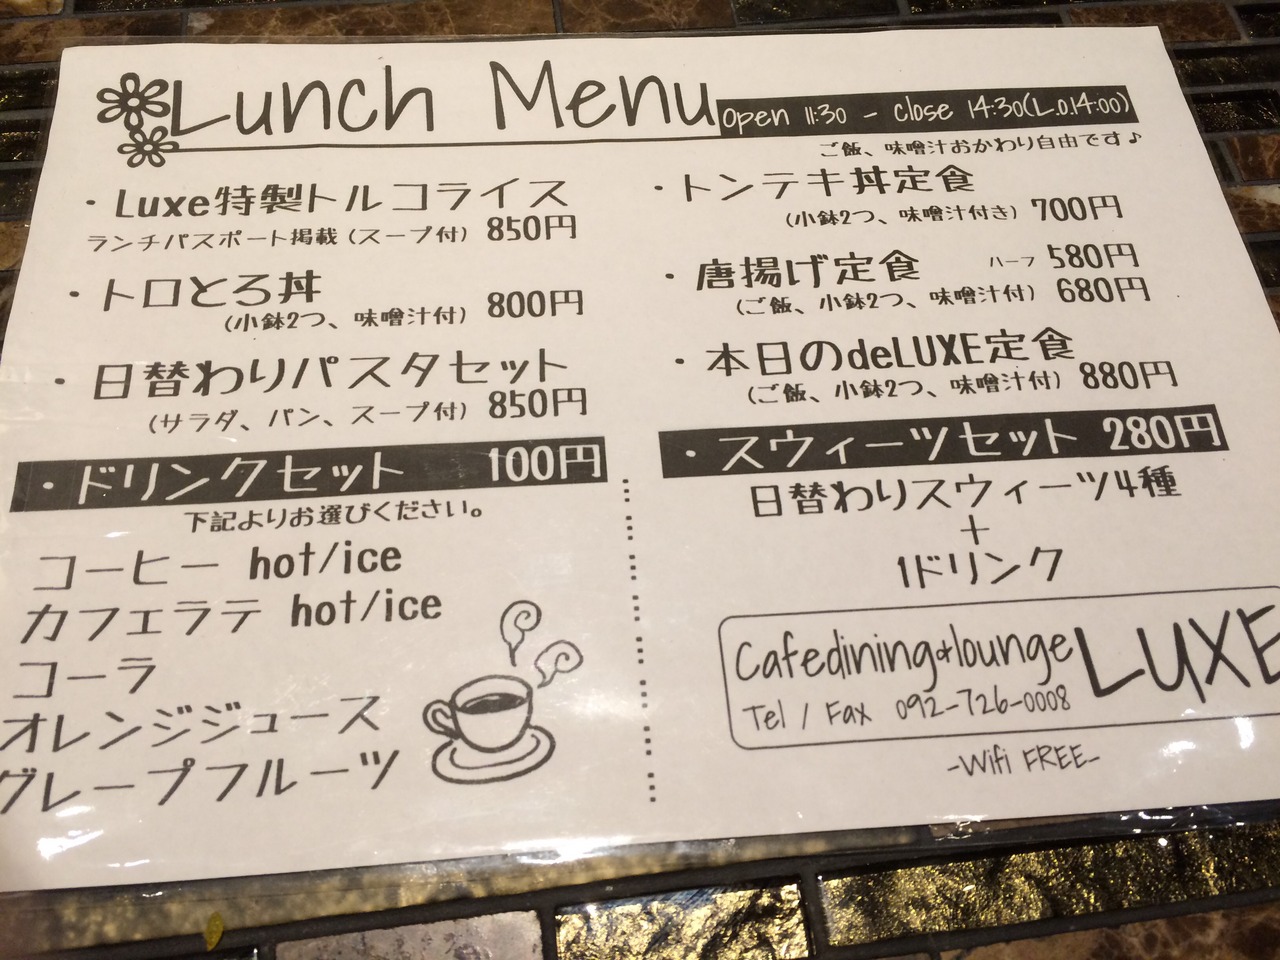 Lunch Menu
Open 11:30 - Close 14:30(L.O.14:00)
ご飯、味噌汁おかわり自由です♪
・Luxe特製トルコライス
ランチパスポート掲載(スープ付) 850円
・トロとろ丼
(小鉢2つ、味噌汁付) 800円
・日替わりパスタセット
(サラダ、パン、スープ付) 850円
・ドリンクセット 100円
下記よりお選びください。
コーヒー hot/ice
カフェラテ hot/ice
コーラ
オレンジジュース
グレープフルーツ
・トンテキ丼定食
(小鉢2つ、味噌汁付き) 700円
・唐揚げ定食 ハーフ 580円
(ご飯、小鉢2つ、味噌汁付) 680円
・本日のdeLUXE定食
(ご飯、小鉢2つ、味噌汁付) 880円
・スウィーツセット 280円
日替わりスウィーツ4種
+
1ドリンク
Cafedining&lounge LUXE
Tel / Fax 092-726-0008
-Wifi FREE-